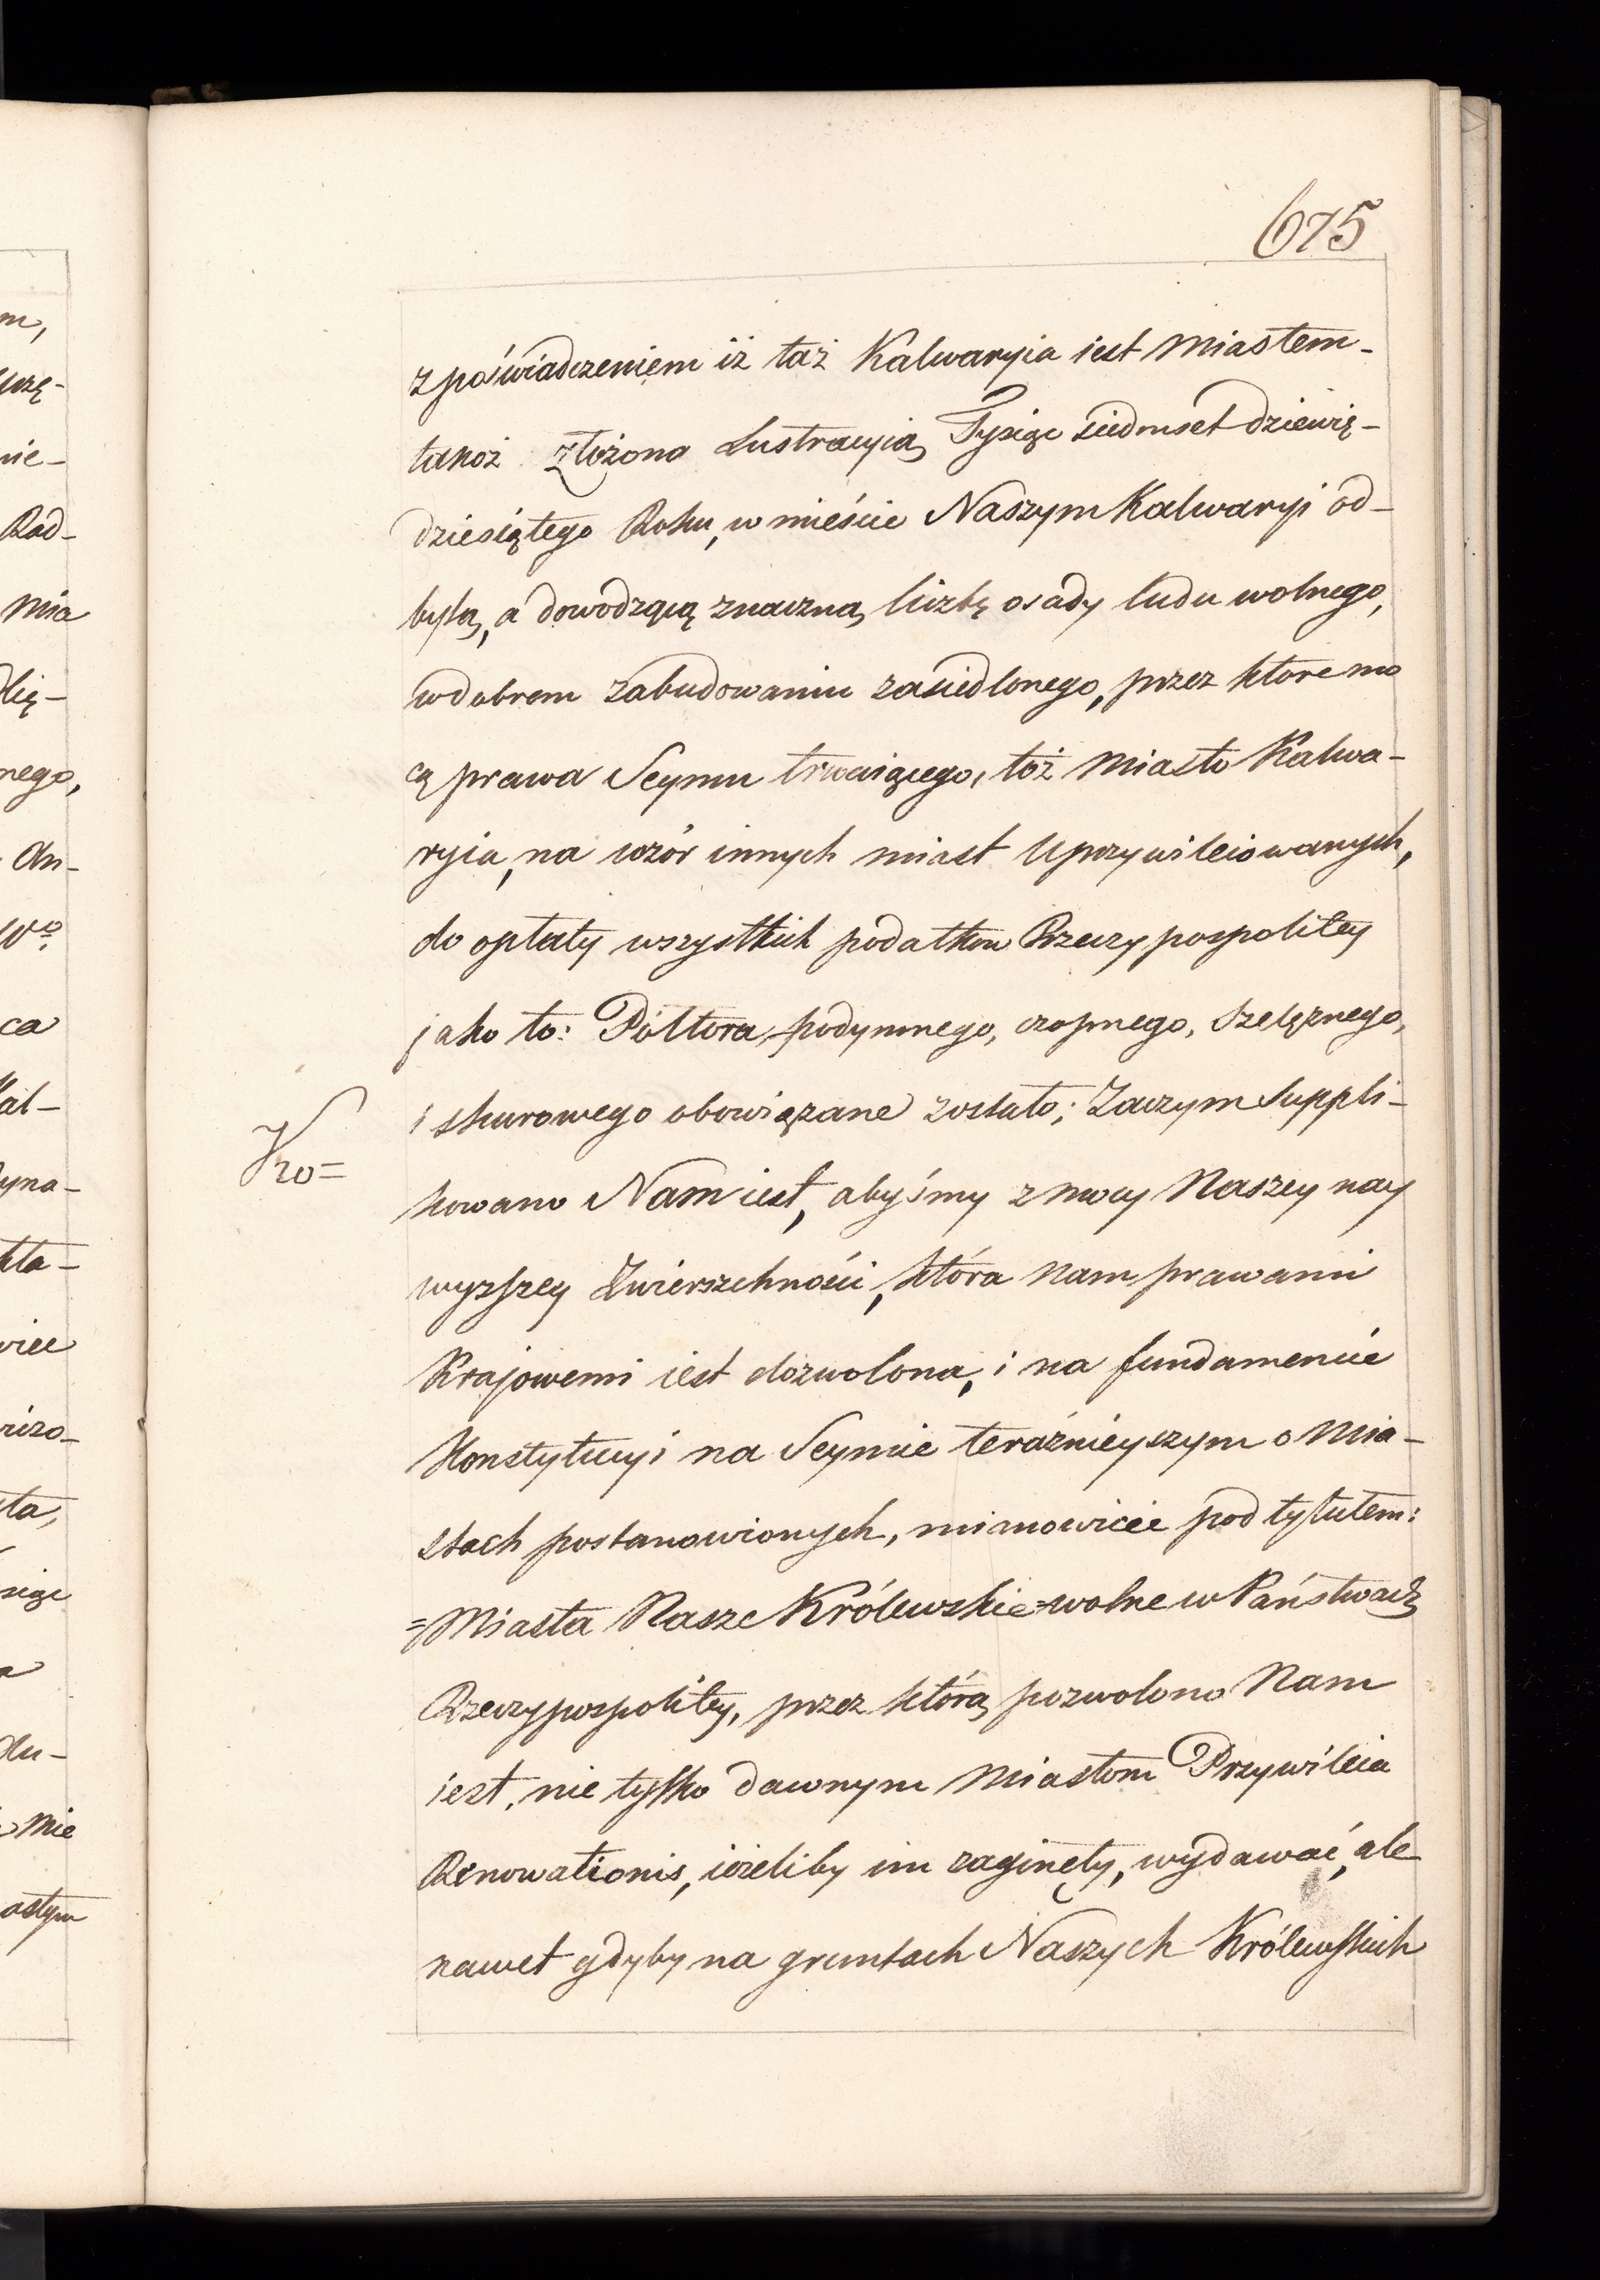 675
z poświadczeniem iż taż Kalwaryia iest Miastem-
takoż złożona Lustracyią Tysiąc siedmset dziewię-
dziesiątego Roku, w mieście Naszym Kalwaryi od-
bytą, a dowodzącą znaczną liczbę osady ludu wolnego,
w dobrem zabudowaniu zasiedlonego, przez które mo
cą prawa Seymu trwaiącego, toż Miasto Kalwa-
ryia, na wzór innych miast Uprzywileiowanych,
do opłaty wszystkich podatkow Rzeczypospolitey
jako to: Półtora podymnego, czopnego, szelężnego,
i skurowego obowiązane zostało; Zaczym Suppli-
Kro=
kowano Nam iest, abyśmy z mocy Naszey nay
wyższey Zwierzchności, która nam prawami
Krajowemi iest dozwolona, i na fundamencie
Konstytucyi na Seymie teraźnieyszym o Mia-
stach postanowionych, mianowicie pod tytułem:
=Miasta Nasze Królewskie=wolne w Państwach
Rzeczypospolitey, przez którą pozwolono Nam
iest, nie tylko dawnym Miastom Przywileia
Renowationis, ieżeliby im zaginęły, wydawać, ale
nawet gdyby na gruntach Naszych Królewskich
m,
nie-
Rad-
Mia
nego,
An-
Wo
ca
Kal-
yna-
kta-
wiec
ta,
siąc
a
du-
Mie
astym